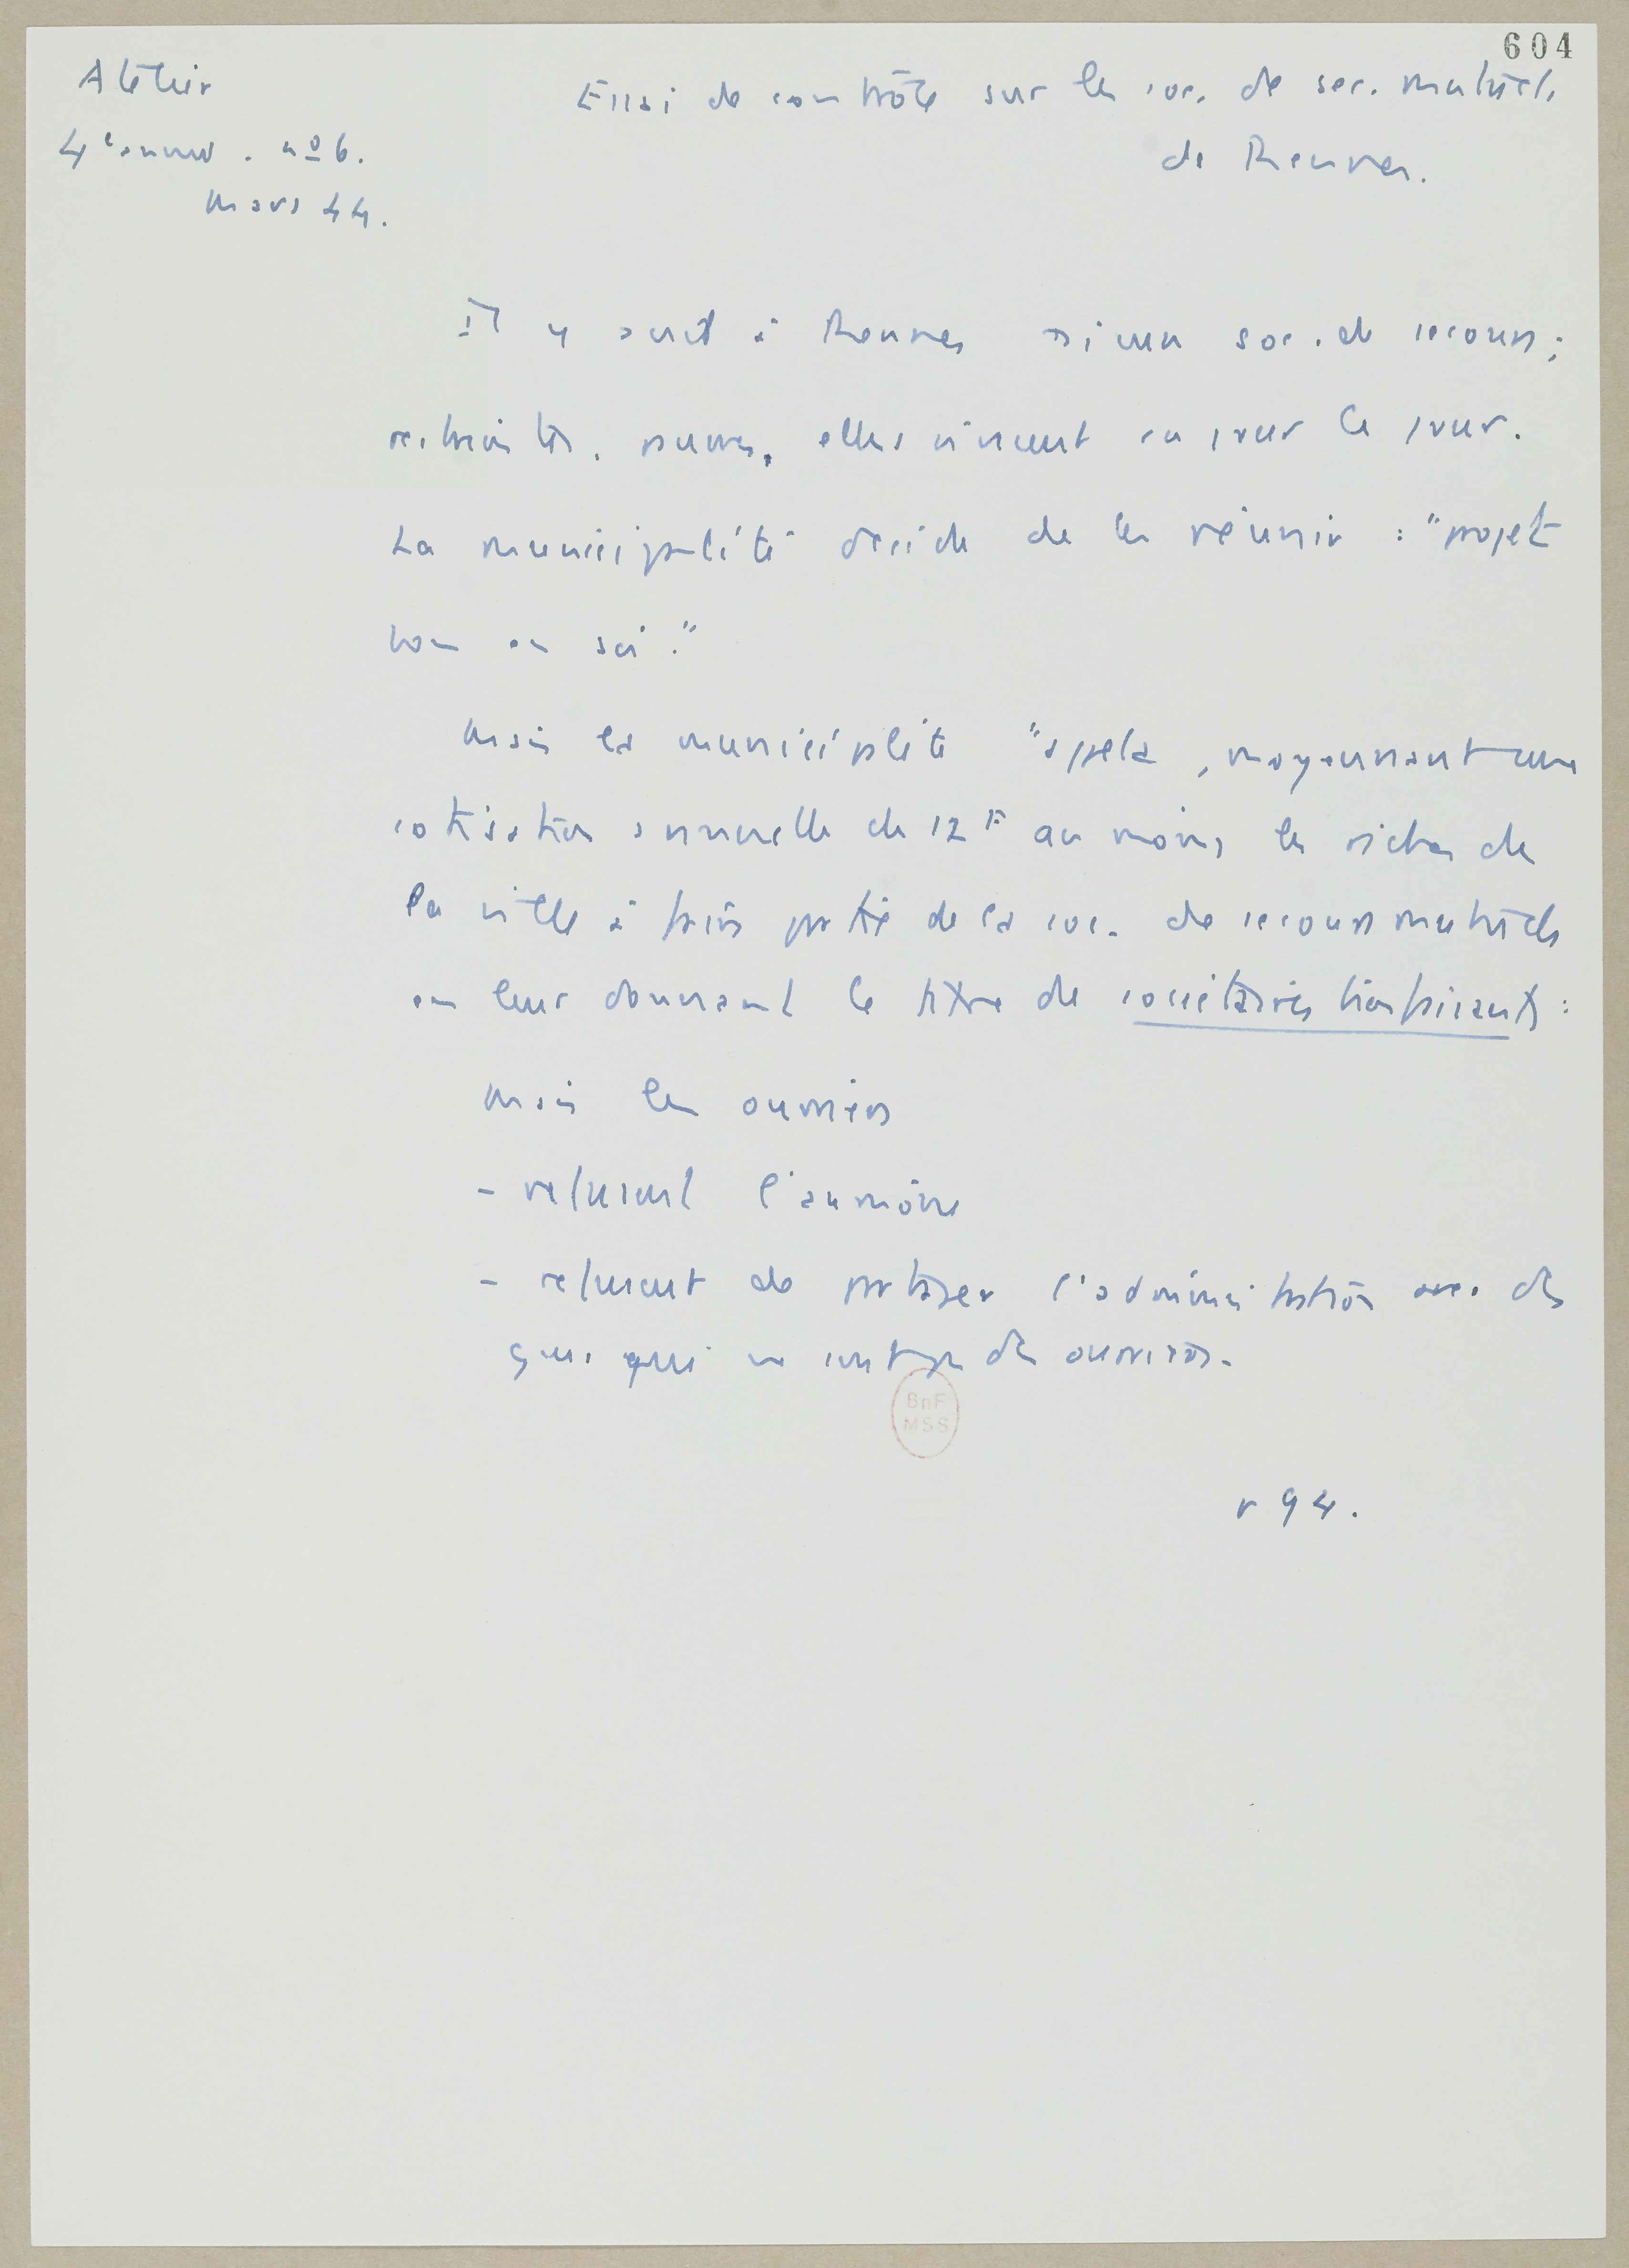 604
Atelier
4e année. nº 6.
mars 44.
Essai de contrôle sur les soc. de sec. mutuels
de Rennes.
Il y avait à Rennes soc. de secours;
restreintes, pauvres, elles vivent au jour le jour.
La municipalité décide de les réunir : "projet
bon en soi."
Mais la municipalité "appela, moyennant une
cotisation annuelle de 12 F au moins les riches de
la ville à faire partie de la soc. de secours mutuels
en leur donnant le titre de sociétaires bienfaisants :
mais les ouvriers
- refusent l'aumône
- refusent de partager l'administration avec des
gens qui ne sont pas des ouvriers.
BnF
MSS
r 94.